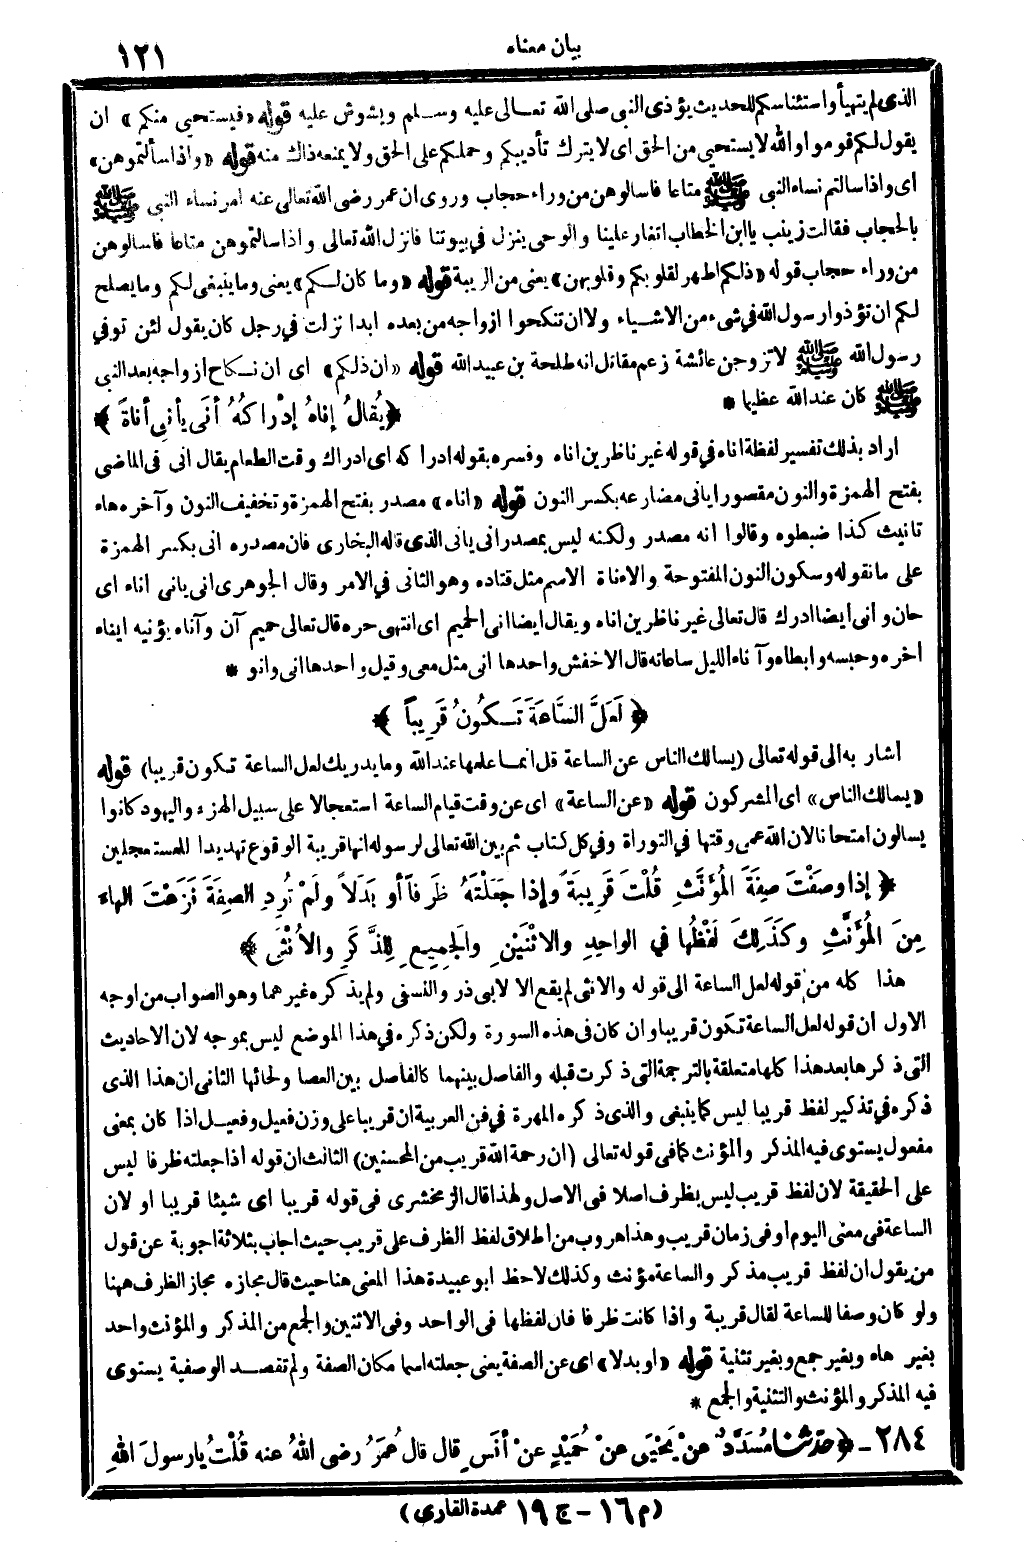 بيان معناه
١٢١
الذى لم يتهيأ واستئناسكم للحديث يؤذى النبى صلى الله تعـالى عليه وسـلم ويشوش عليه قوله «فيستحيى منكم» ان
يقول لكم قوموا والله لا يستحيى من الحق اى لا يترك تأديبكم وحملكم على الحق ولا يمنعه ذاك منه قوله «واذا سألتموهن»
اى واذا سالتم نساء النبى ﷺ متاعا فاسالوهن من وراء حجاب وروى ان عمر رضى الله تعالى عنه امر نساء النبى ﷺ
بالحجاب فقالت زينب يا ابن الخطاب اتغار علينا والوحى ينزل في بيوتنا فانزل الله تعالى واذا سالتموهن متاعا فاسالوهن
من وراء حجاب قوله «ذلكم اطهر لقلوبكم وقلوبهن» يعنى من الريبة قوله «وما كان لكم» يعنى وما ينبغى لكم وما يصلح
لكم ان تؤذوا رسول الله في شىء من الاشياء ولا ان تنكحوا ازواجه من بعده ابدا نزلت في رجل كان يقول لئن توفي
رسول الله ﷺ لاتزوجن عائشة زعم مقاتل انه طلحة بن عبيد الله قوله «ان ذلكم» اى ان نكاح ازواجه بعد النبى
ﷺ كان عند الله عظيما *
﴿ يُقالُ إناهُ إدْراكُهُ أنَى يأنِى أناةً ﴾
اراد بذلك تفسير لفظة اناه في قوله غير ناظرين اناه وفسره بقوله ادراكه اى ادراك وقت الطعام يقال انى فى الماضى
بفتح الهمزة والنون مقصورا يانى مضارعه بكسر النون قوله «اناه» مصدر بفتح الهمزة وتخفيف النون وآخره هاء
تانيث كذا ضبطوه وقالوا انه مصدر ولكنه ليس بمصدر انى يانى الذى قاله البخارى فان مصدره انى بكسر الهمزة
على ما نقوله وسكون النون المفتوحة والاناة الاسم مثل قتاده وهو الثانى في الامر وقال الجوهرى انى يانى اناء اى
حان وانى ايضا ادرك قال تعالى غير ناظرين اناه ويقال ايضا انى الحميم اى انتهى حره قال تعالى حميم آن وآناه يؤنيه ايناء
اخره وحبسه وابطاه وآناء الليل ساعاته قال الاخفش واحدها انى مثل معى وقيل واحدها انى وانو *
﴿ لَعلَّ السَّاعَةَ تَـكُونُ قَرِيباً ﴾
اشار به الى قوله تعالى (يسالك الناس عن الساعة قل انما علمها عند الله وما يدريك لعل الساعة تكون قريبا) قوله
«يسالك الناس» اى المشركون قوله «عن الساعة» اى عن وقت قيام الساعة استعجالا على سبيل الهزء واليهود كانوا
يسالون امتحانا لان الله عمى وقتها في التوراة وفي كل كتاب ثم بين الله تعالى لرسوله انها قريبة الوقوع تهديدا للمستعجلين
﴿ إذا وصَفْتَ صِفَةَ المُؤَنَّثِ قُلْتَ قَرِيبَةً وإذا جَعَلْتَهُ ظَرفاً أو بَدَلاً ولَمْ تُرِدِ الصِفَةَ نَزَعْتَ الهاء
مِنَ المُؤَنَّثِ وكَذَلِكَ لَفْظُها في الواحِدِ والاثْنَيْنِ والجَمِيعِ لِلذَّكَرِ والأُنْثَى ﴾
هذا كله من قوله لعل الساعة الى قوله والانثى لم يقع الا لابى ذر والنسفى ولم يذكره غيرهما وهو الصواب من اوجه
الاول ان قوله لعل الساعة تكون قريبا وان كان فى هذه السورة ولكن ذكره في هذا الموضع ليس بموجه لان الاحاديث
التى ذكرها بعد هذا كلها متعلقة بالترجمة التى ذكرت قبله والفاصل بينهما كالفاصل بين العصا ولحائها الثانى ان هذا الذى
ذكره في تذكير لفظ قريبا ليس كما ينبغى والذى ذكره المهرة في فن العربية ان قريبا على وزن فعيل وفعيـل اذا كان بمعنى
مفعول يستوى فيه المذكر والمؤنث كما فى قوله تعالى (ان رحمة الله قريب من المحسنين) الثالث ان قوله اذا جعلته ظرفا ليس
على الحقيقة لان لفظ قريب ليس بظرف اصلا فى الاصل ولهذا قال الزمخشرى فى قوله قريبا اى شيئا قريبا او لان
الساعة فى معنى اليوم او فى زمان قريب وهذا هروب من اطلاق لفظ الظرف على قريب حيث اجاب بثلاثة اجوبة عن قول
من يقول ان لفظ قريب مذكر والساعة مؤنث وكذلك لاحظ ابو عبيدة هذا المعنى هنا حيث قال مجازه مجاز الظرف ههنا
ولو كان وصفا للساعة لقال قريبة واذا كانت ظرفا فان لفظها فى الواحد وفى الاثنين والجمع من المذكر والمؤنث واحد
بغير هاء وبغير جمع وبغير تثنية قوله «او بدلا» اى عن الصفة يعنى جعلته اسما مكان الصفة ولم تقصـد الوصفية يستوى
فيه المذكر والمؤنث والتثنية والجمع *
٢٨٤ - ﴿ حدثنا مُسَدَّدٌ عنْ يَحْيَى عنْ حُمَيْدٍ عنْ أنَسٍ قال قال عُمَرُ رضى اللهُ عنه قُلْتُ يا رسولَ اللهِ
(م ١٦ - ج ١٩ عمدة القارى)